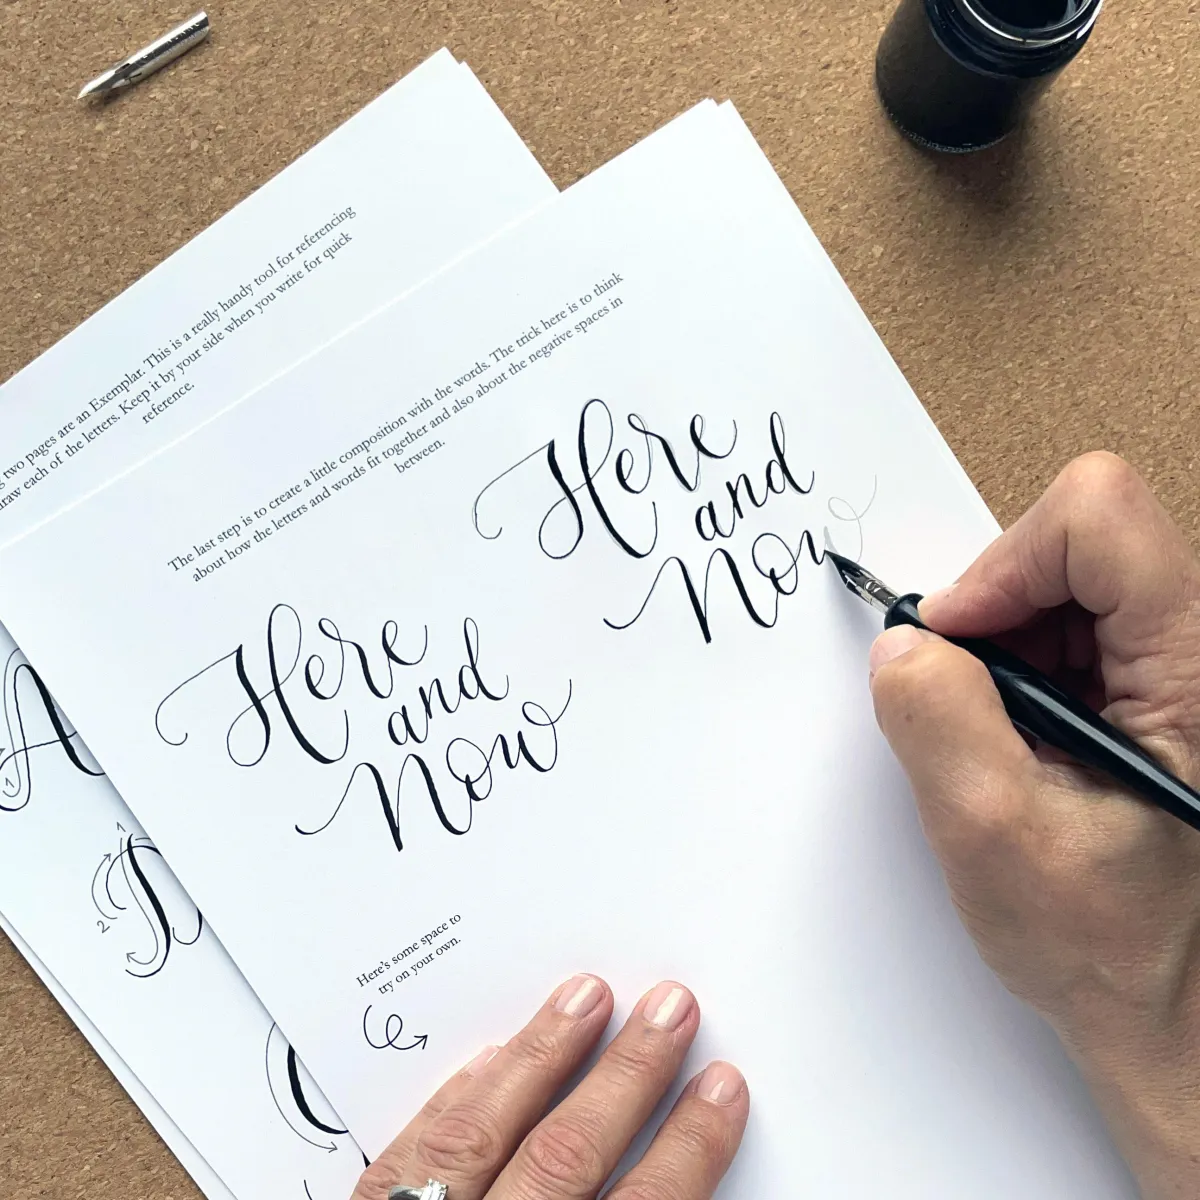 two pages are an Exemplar. This is a really handy tool for referencing
draw each of the letters. Keep it by your side when you write for quick
reference.
The last step is to create a little composition with the words. The trick here is to think
about how the letters and words fit together and also about the negative spaces in
between.
Here
and
Now
Here
and
Now
Here's some space to
try on your own.
A
1
1
2
D